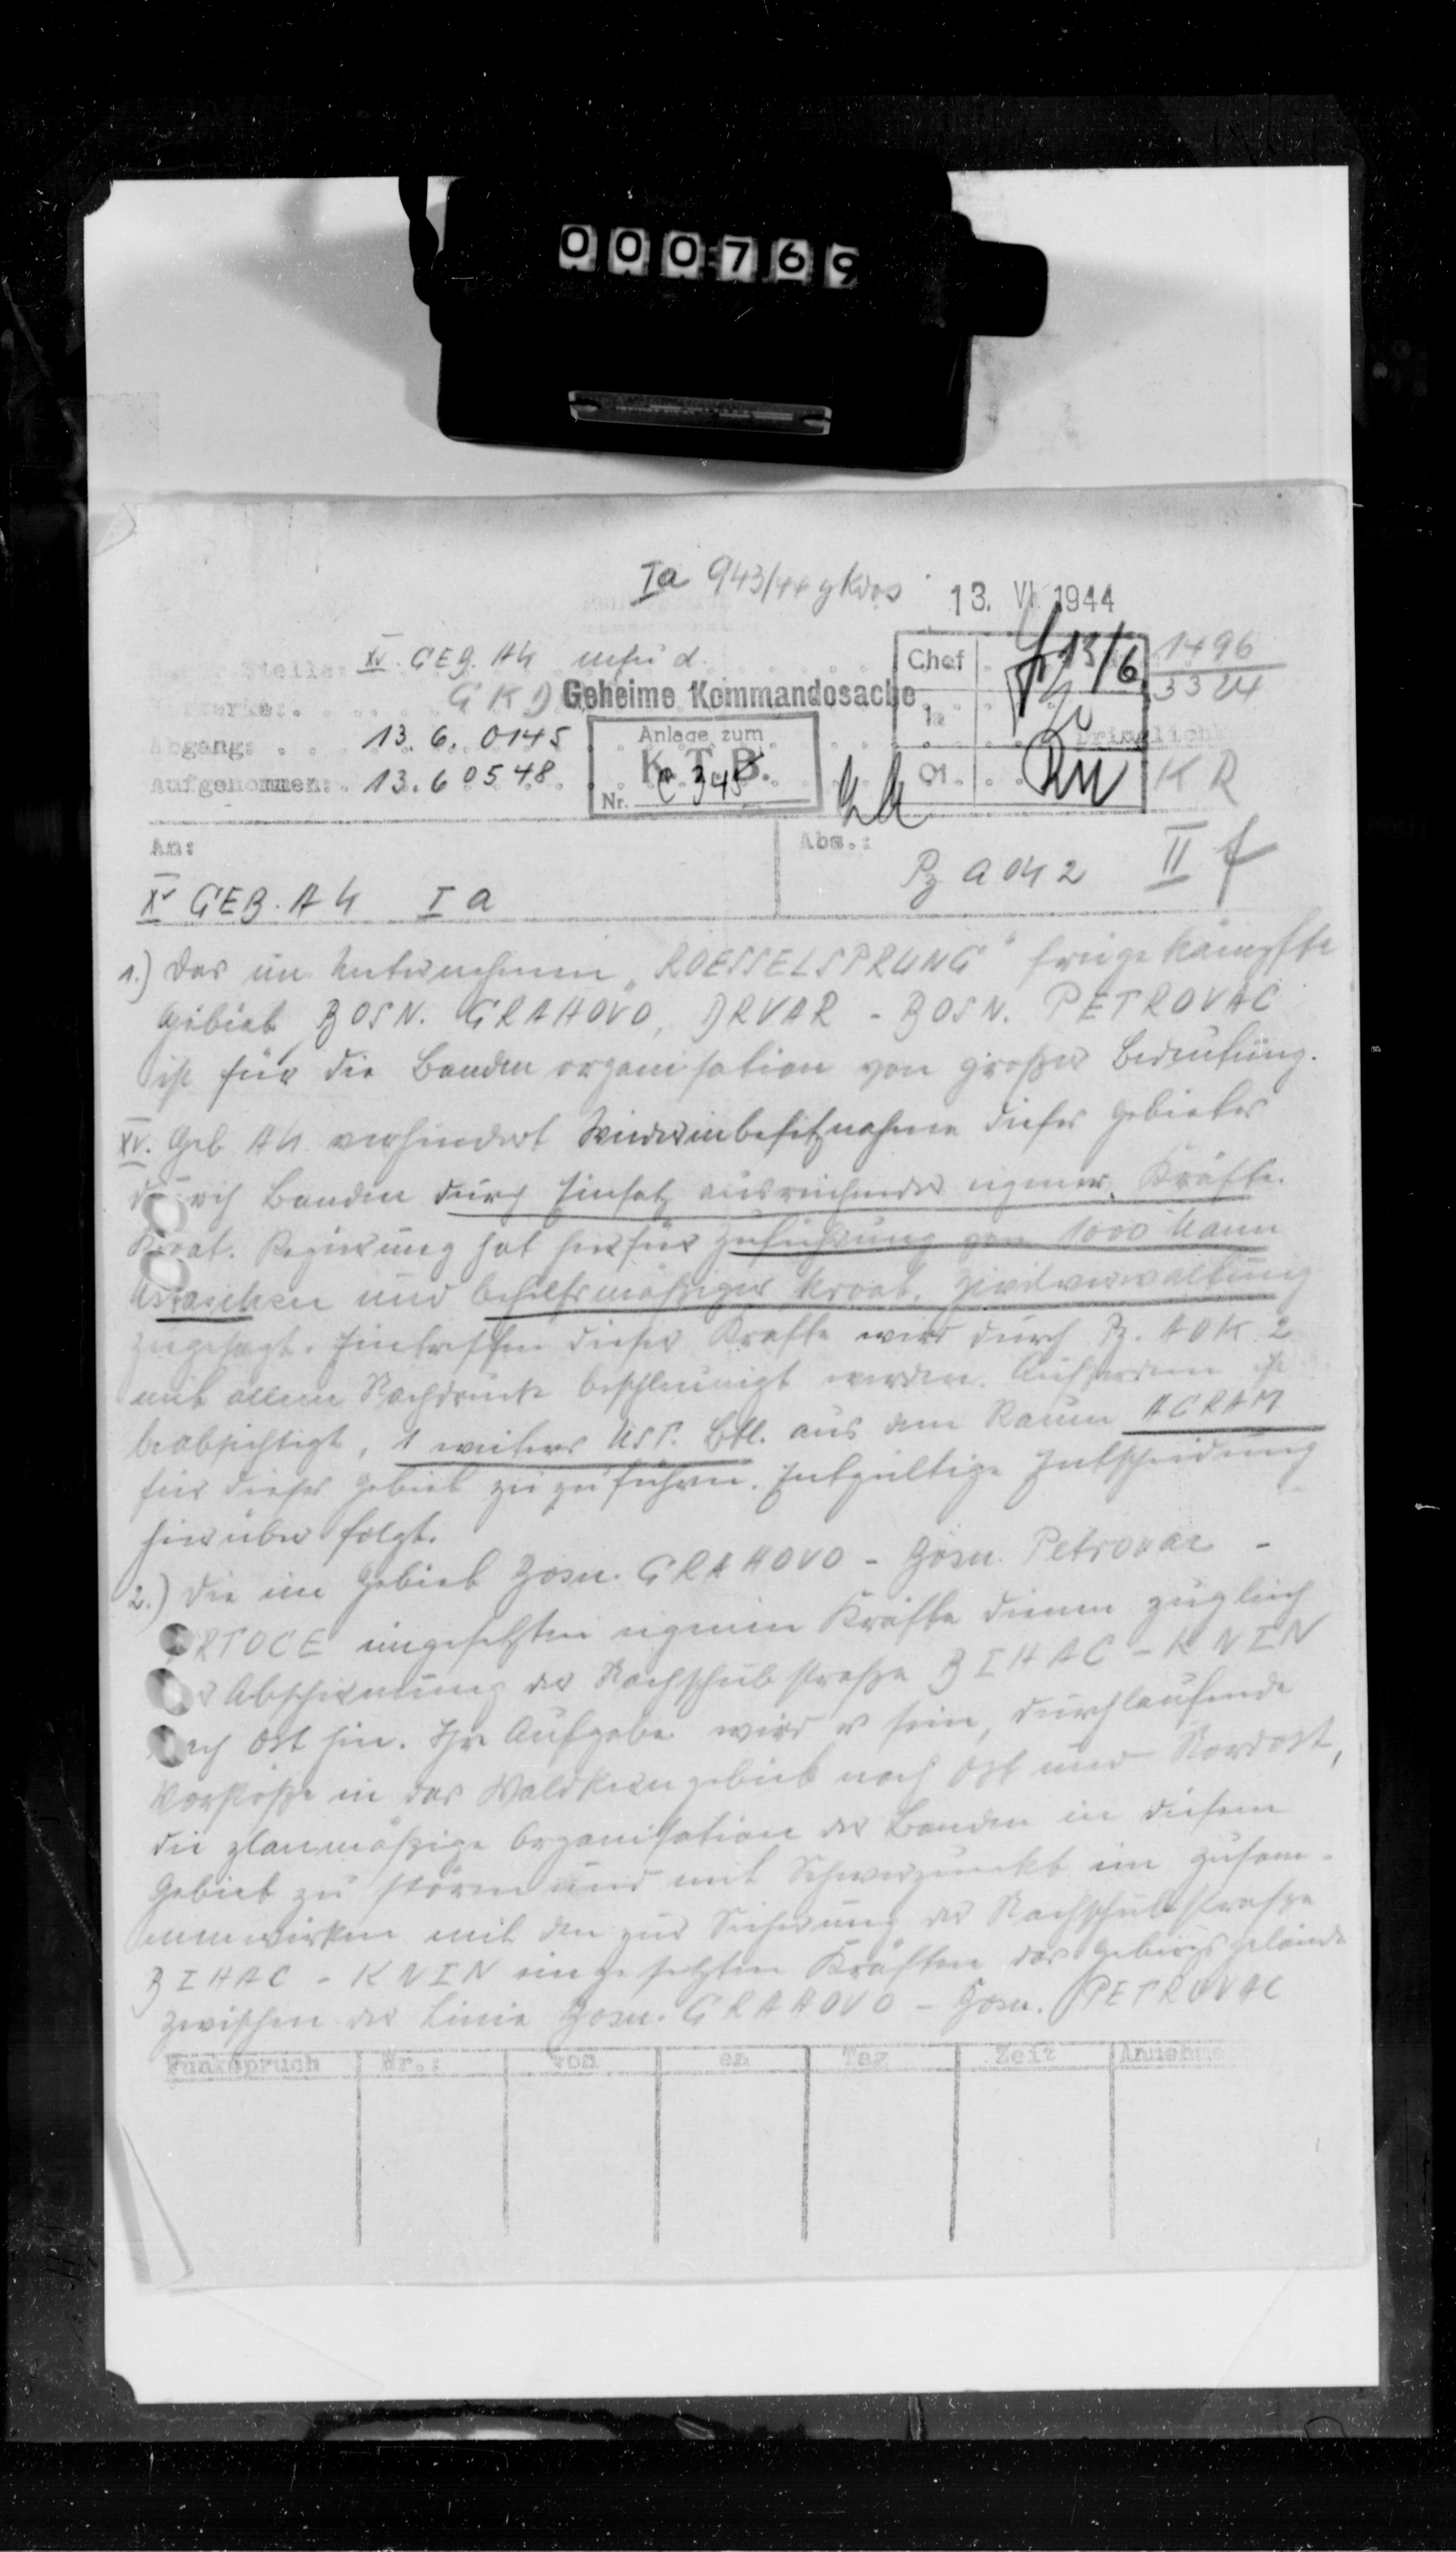 000769
Ia 943/44 gKdos 13. VI. 1944
Stelle: XV. GEB. AK
GKD Geheime Kommandosache
Chef 13/6 1496
3324
Abgang: 13.6. 0145
Aufgenommen: 13.6 0548
Anlage zum
K.T.B.
Nr. C 345
Ia
O1.
Dringlichk
KR
An:
XV GEB. AK Ia
Abs.:
Pz AOK 2 II
1.) Das im Unternehmen "ROESSELSPRUNG" freigekämpfte
Gebiet BOSN. GRAHOVO, DRVAR - BOSN. PETROVAC
ist für die Bandenorganisation von großer Bedeutung.
XV. Geb AK verhindert Wiederinbesitznahme dieses Gebietes
durch Banden durch Einsatz ausreichender eigener Kräfte.
Kroat. Regierung hat hierfür Zuführung von 1000 Mann
Ustaschen und behelfsmäßiger kroat. Zivilverwaltung
zugesagt. Eintreffen dieser Kräfte wird durch Pz. AOK 2
mit allem Nachdruck beschleunigt werden. Außerdem ist
beabsichtigt, 1 weiteres UST. Btl. aus dem Raum AGRAM
für dieses Gebiet zuzuführen. Entgültige Entscheidung
hierüber folgt.
2.) Die im Gebiet Bosn. GRAHOVO - Bosn. Petrovac -
RTOCE eingesetzten eigenen Kräfte dienen zugleich
Abschirmung der Nachschubstraße BIHAC - KNIN
nach Ost hin. Ihre Aufgabe wird es sein, durchlaufende
Vorstöße in das Waldkerngebiet nach Ost und Nordost,
die planmäßige Organisation der Banden in diesem
Gebiet zu stören und mit Schwerpunkt im Zusam-
menwirken mit den zur Sicherung der Nachschubstraße
BIHAC - KNIN eingesetzten Kräften das Gebirgsgelände
zwischen der Linie Bosn. GRAHOVO - Bosn. PETROVAC
Funkspruch Nr.: von an Tag Zeit Annehme